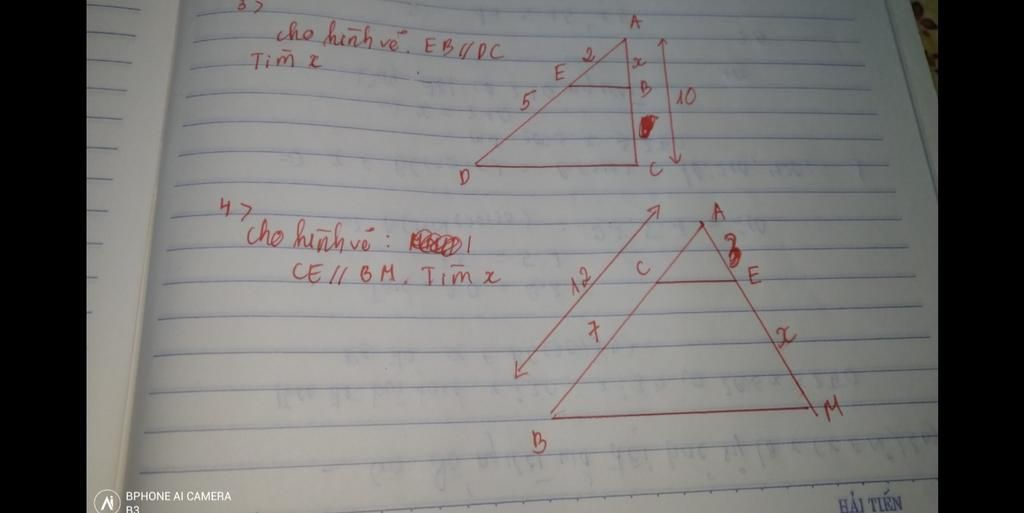 3>
Cho hình vẽ. EB // DC
Tìm x
A
2
x
E
B
5
10
D
C
4>
Cho hình vẽ:
CE // BM. Tìm x
A
C
E
12
7
x
B
M
BPHONE AI CAMERA
B3
HẢI TIẾN